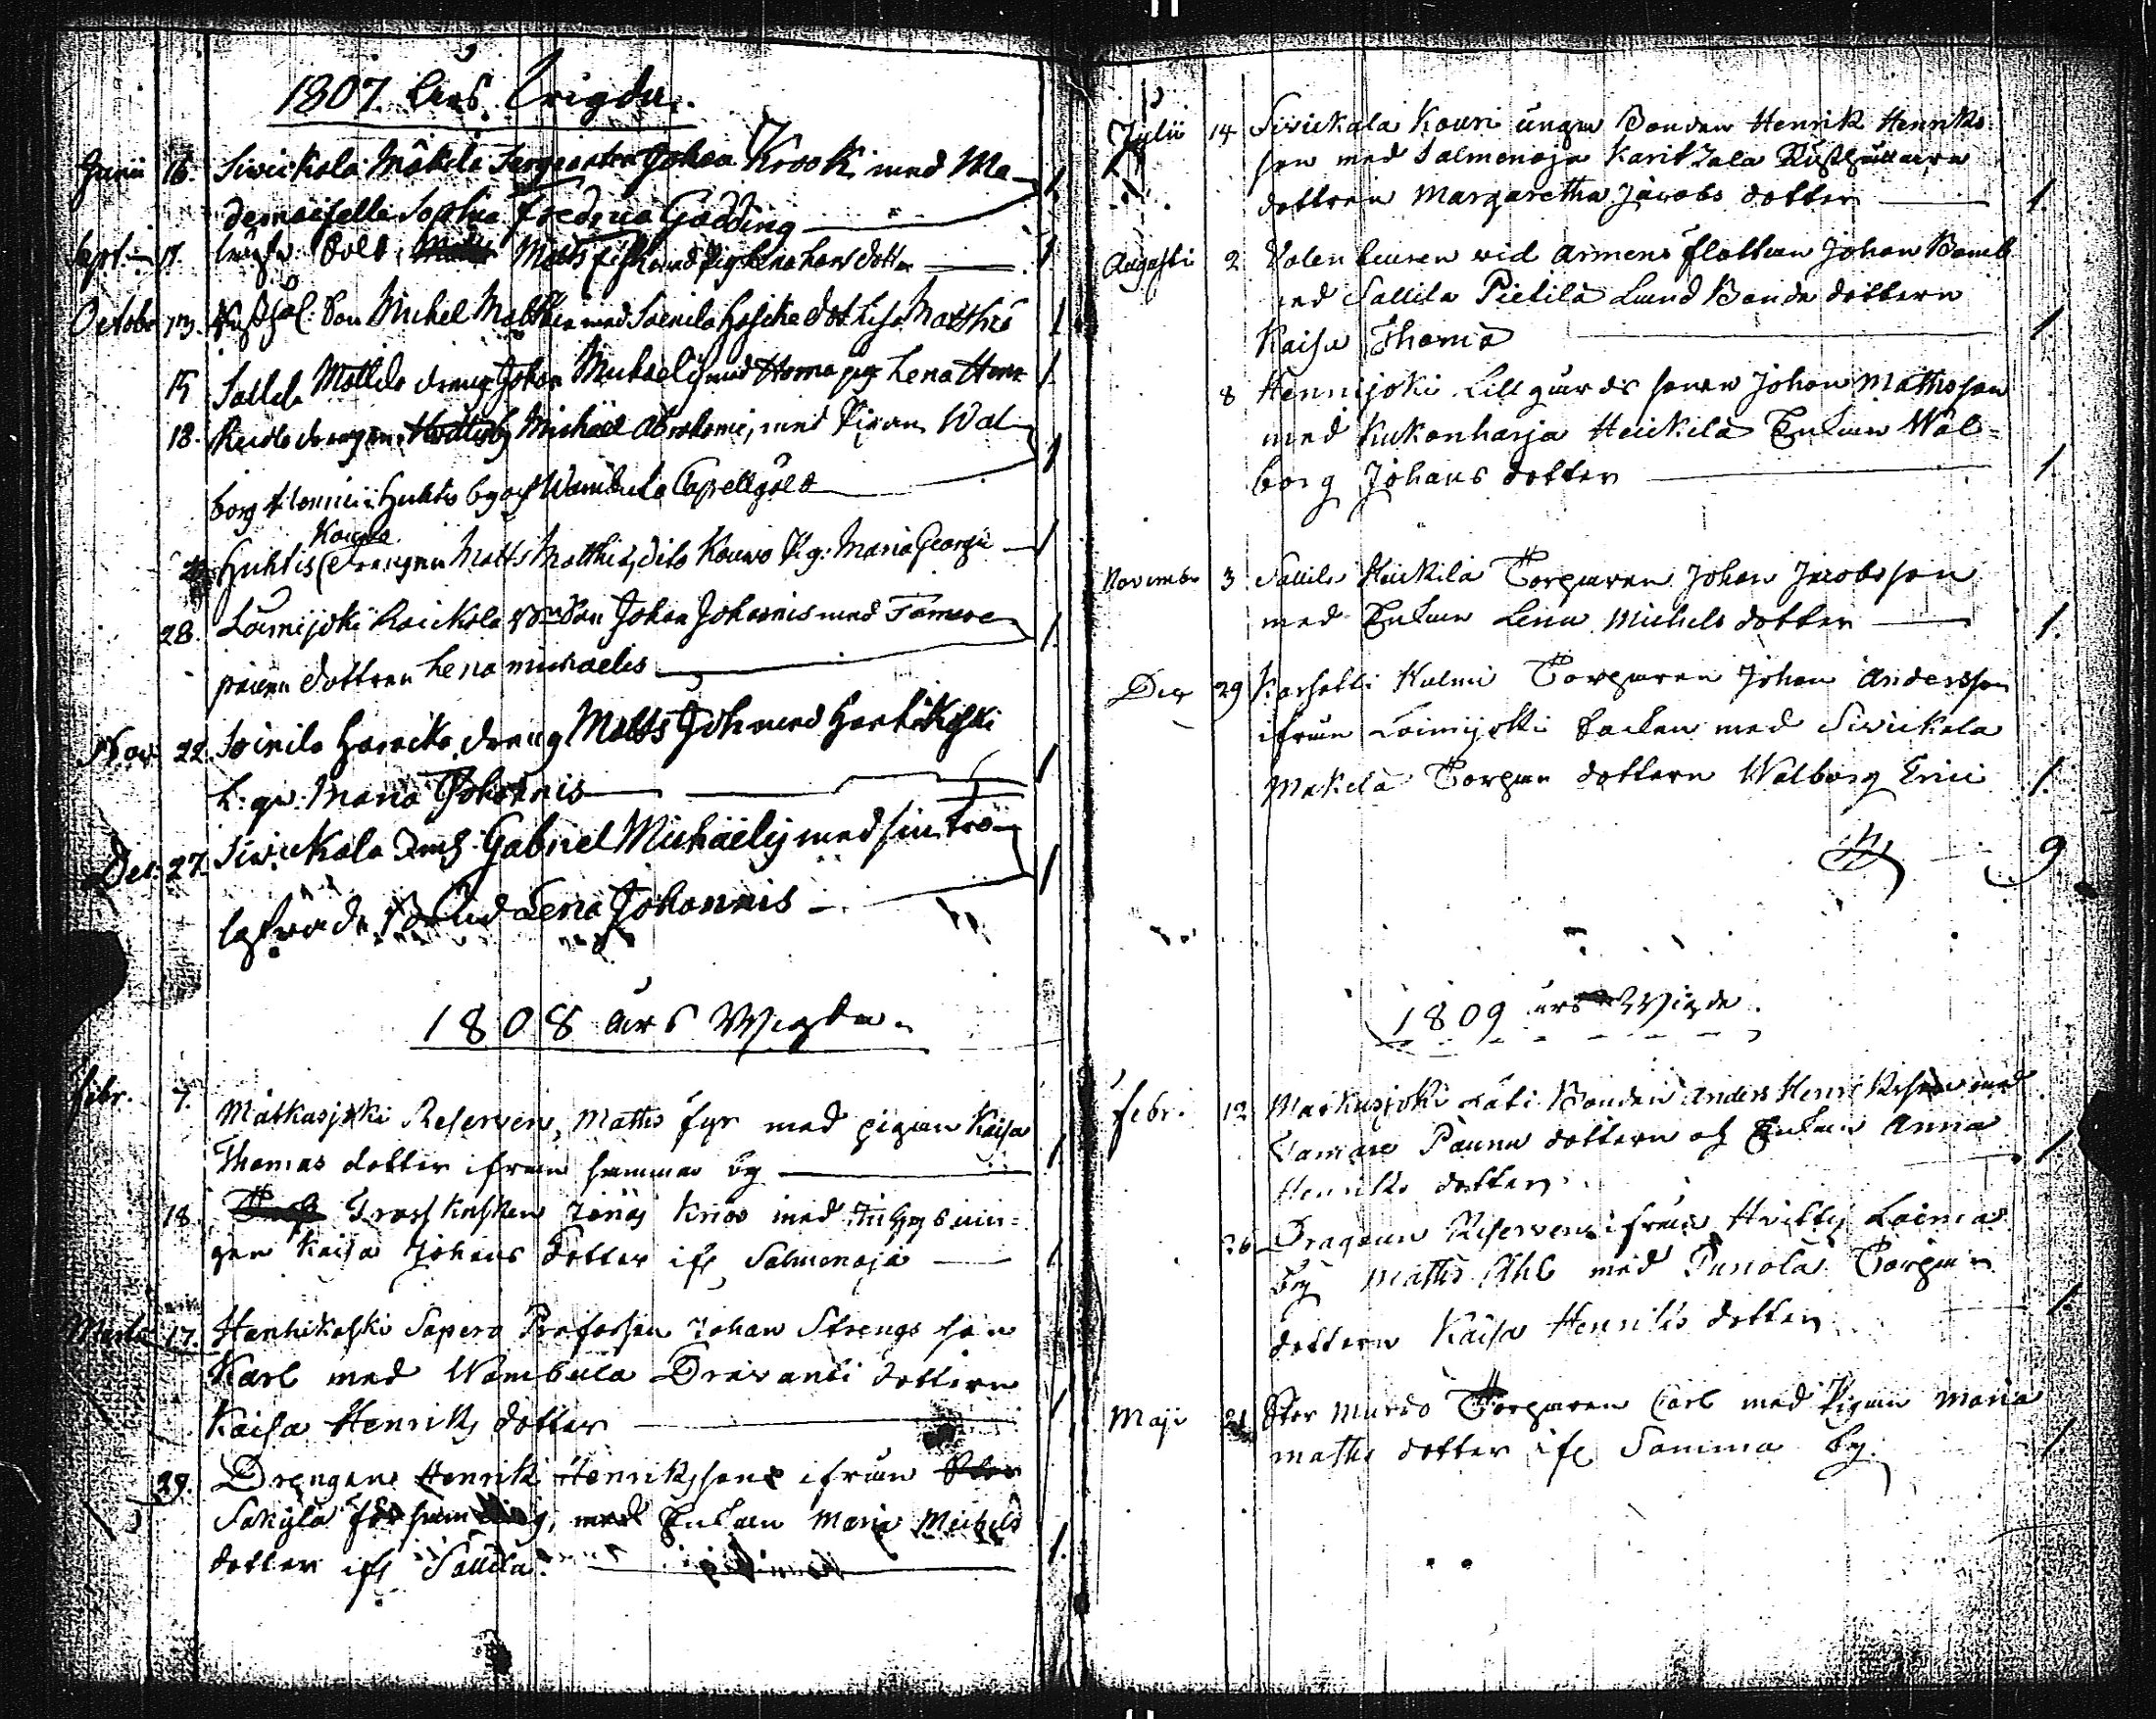 1807. Års Vigde.
Junii 16. Sivickala Mäkilä Sergeanten Johan Krook med Ma- 1
demoiselle Sophia Fredrica Gadding
Sept. 17. Sold. Matts Fisk med Pig. Lena Hans dotter 1
Octobr 13. Rusthål: Son Michel Matthiæ med Soinila Hoscka dot Lisa Matthiæ 1
15 Sallila Mattila dreng Johan Michaelis med Horna pig Lena Henr 1
18. drengen Michael Abrahami, med Pigan Wal-
borg Huhtis by af Wambula Capellgäld 1
Kouvo
Huhtis drengen Matts Matthiæ, dito Kouvo Pig: Maria Georgii 1
28. Loimijoki Raickola Son Johan Johannis med Tamare
dottren Lena Michaelis 1
Nov. 22. Soinila Hoscka dreng Matts Joh med Hanhikoski
Maria Johannis 1
Dec. 27. Sivickala Gabriel Michaelis med sin Tro-
lofvade Brud Lena Johannis 1
1808 års Wigde.
Febr. 7. Matkusjoki Reserven, Matts Fyr med pigan Kaisa
Thomas dotter ifrån samma by 1
18. Trosskusken Jonas Kroo med Inhyses
Kaisa Johans dotter ifr Salmenoja 1
Martii 17. Hanhikoski Sapero Profossen Johan Strengs son
Karl med Wambula Dravanti dottren
Kaisa Henriks dotter 1
29. Drengen Henrik Henriksson ifrån
Säkylä församling, med Enkan Maria Michels
dotter ifr Sallila. 1
Julii 14 Sivickala Kouri unga Bonden Henrik Henriks
son med Salmenoja Karitzala Rusthållare
dottren Margaretha Jacobs dotter 1.
Augusti 2 Volenteuren vid Armens flottan Johan Bomb
med Sallila Pietilä Land Bonde dottern
Kaisa Thomæ 1
8 Hennijoki Lillgårds sonen Johan Mathsson
med Kukonharja Heickilä Enkan Wal=
borg Johans dotter 1.
Novembr 3 Sallila Heickilä Torparen Johan Jacobsson
med Enkan Lena Michels dotter 1.
Decr 29 Karhatti Kulmi Torparen Johan Andersson
ifrån Loimijoki Socken med Sivickala
Mäkilä Torpare dottern Walborg Erici 1.
9
1809 års Wigde.
Febr. 12 Matkusjoki Läti Bonden Anders Henriksson med
Tamare Paunu dottern och Enkan Anna
Henriks dotter 1
26 Dragoun Reserven ifrån Hvittis Loima
by Matts Ahl med Punola Torpare
dottern Kaisa Henriks dotter 1.
Maji 21 Stor Murdo Torparen Carl med Pigan Maria
Maths dotter ifr Samma by. 1.